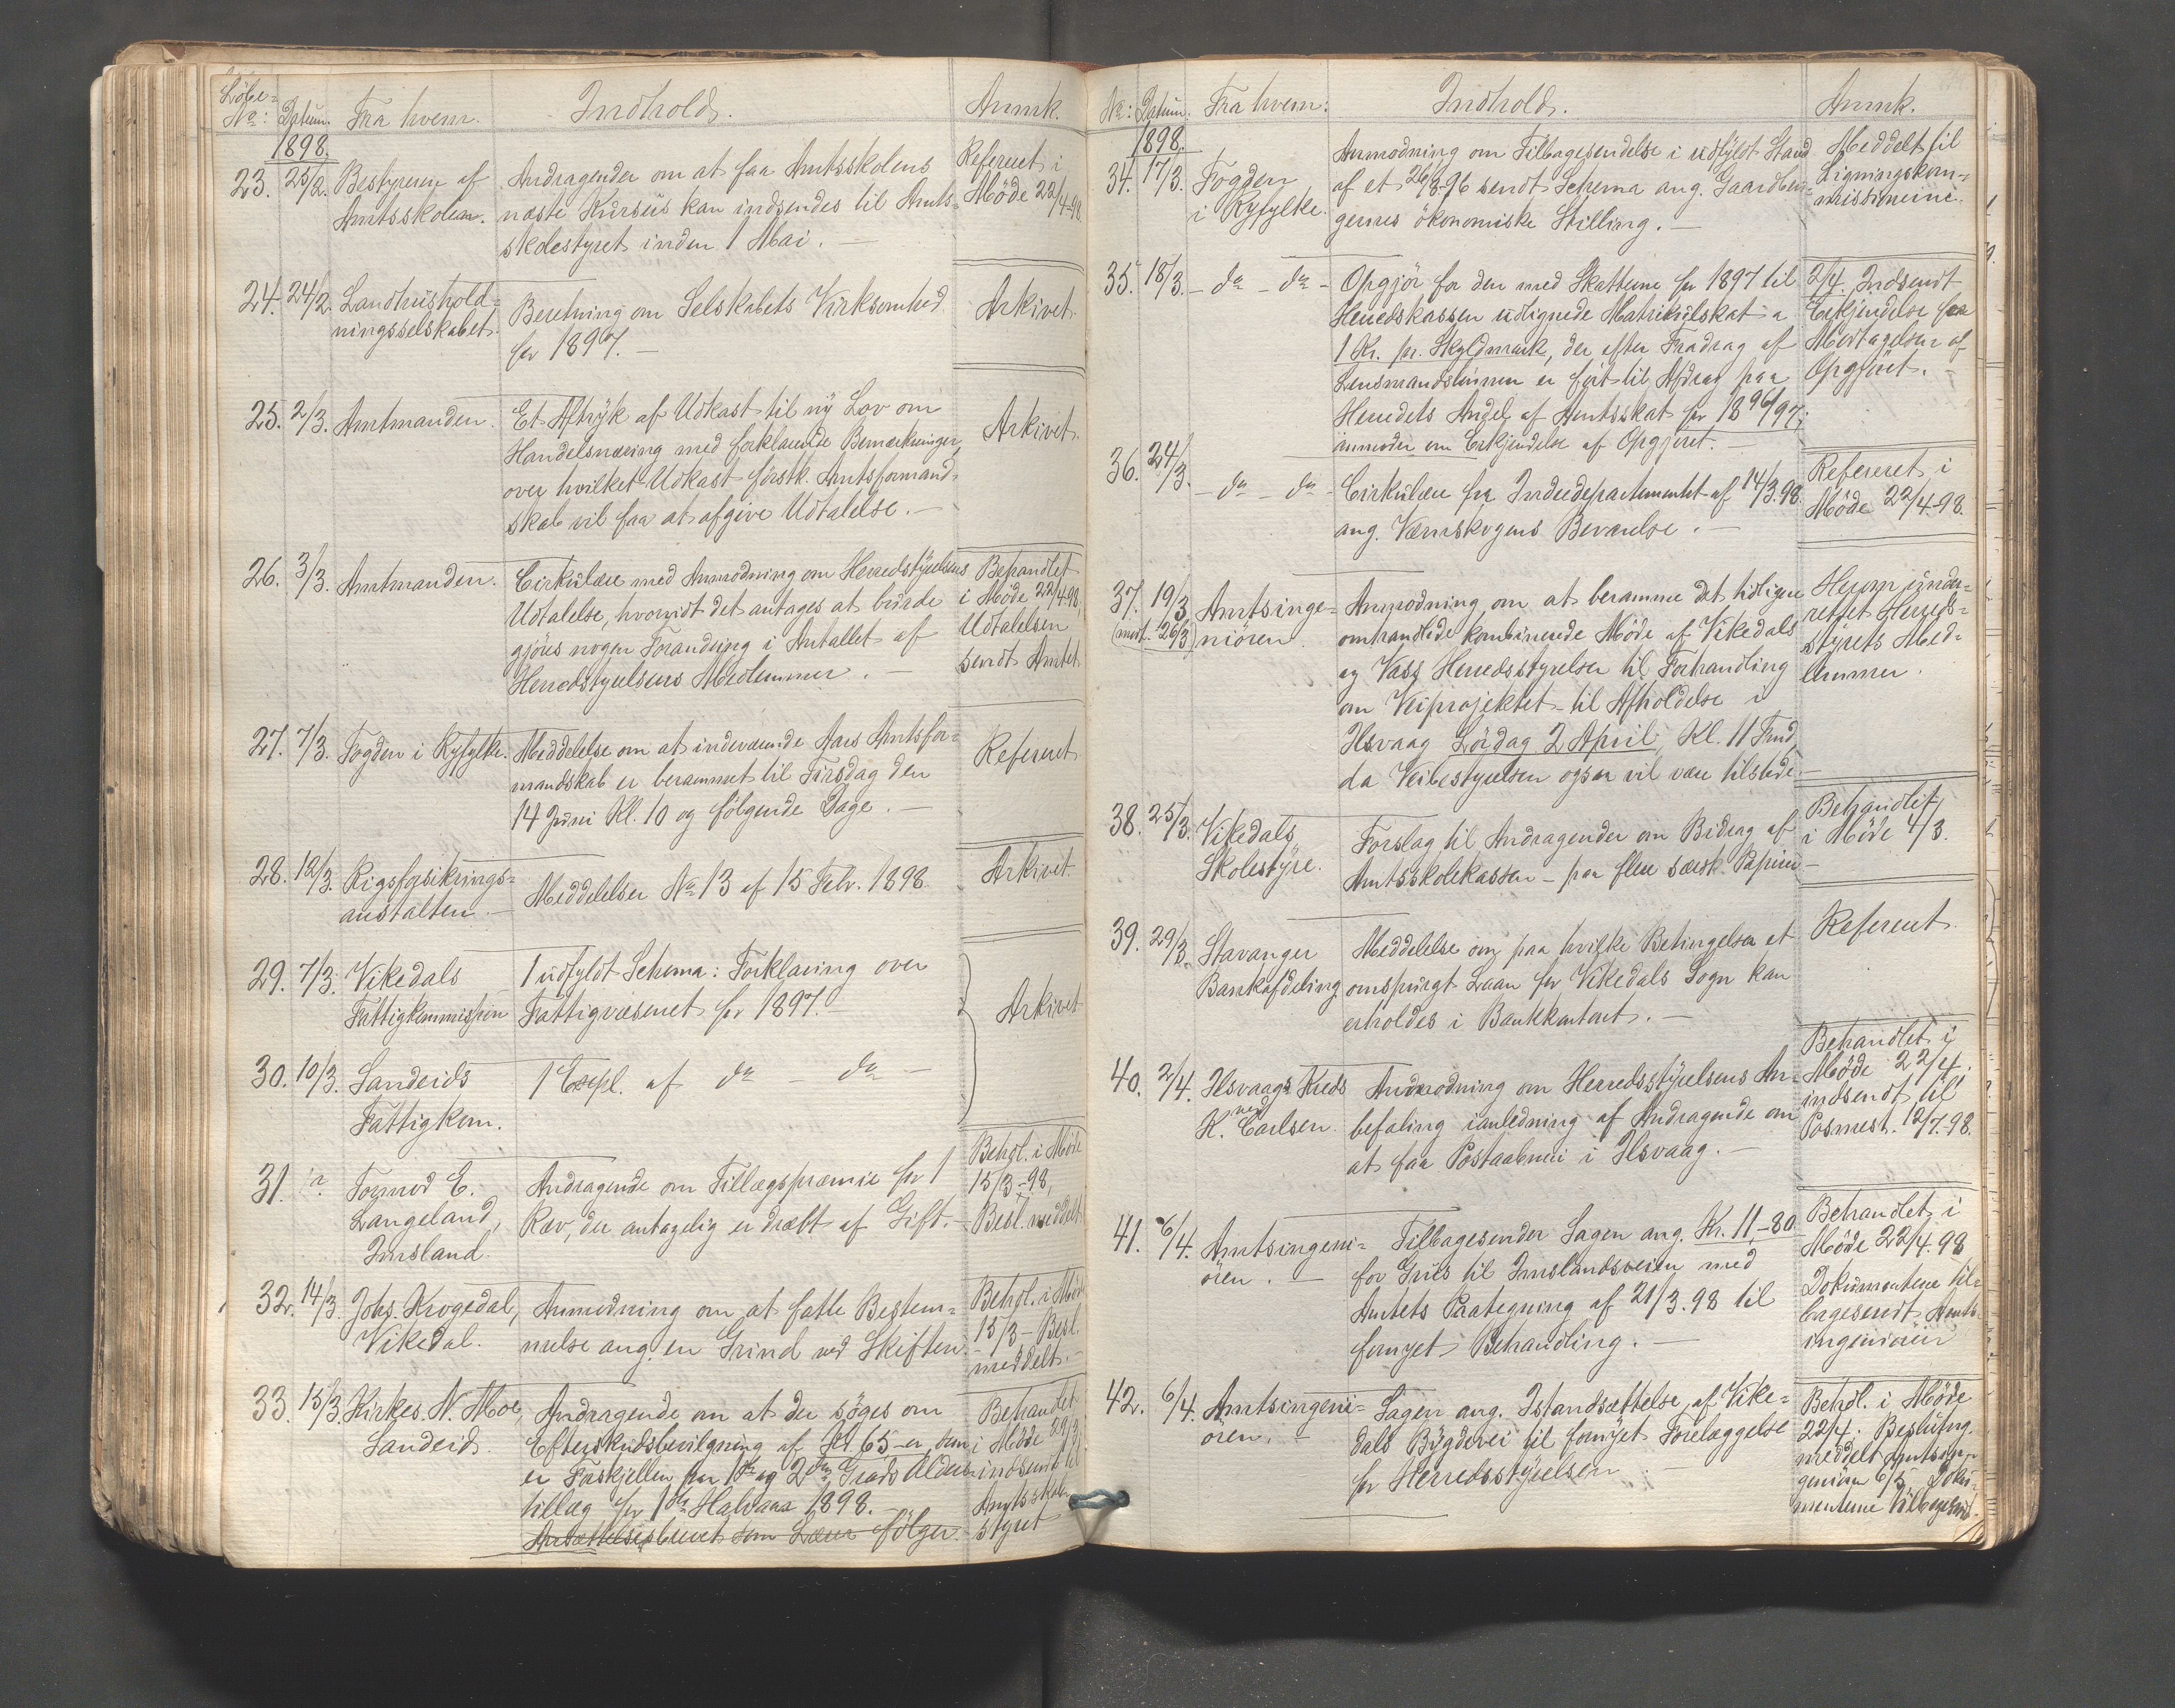 Løbe-
No: Datum. Fra hvem. Indhold. Anmk.
1898.
23. 25/2. Bestyreren af Andragender om at faa Amtsskolens Refereret i
Amtsskolen. næste Kursus kan indsendes til Amts- Møde 22/4-98.
skolestyret inden 1 Mai. —
24. 24/2. Landhushold- Beretning om Selskabets Virksomhed Arkivet
ningsselskabet. for 1897. —
25. 2/3. Amtmanden. Et Aftryk af Udkast til ny Lov om Arkivet.
Handelsnæring med forklarende Bemærkninger,
over hvilket Udkast førstk. Amtsformand-
skab vil faa at afgive Udtalelse. —
26. 3/3. Amtmanden. Cirkulære med Anmodning om Herredsstyrelsens Behandlet
Udtalelse, hvorvidt det antages at burde i Møde 22/4-98,
gjøres nogen Forandring i Antallet af Udtalelsen
Herredsstyrelsens Medlemmer. — sendt Amtet
27. 7/3. Fogden i Ryfylke. Meddelelse om at indeværende Aars Amtsfor- Refereret
mandskab er berammet til Tirsdag den
14 Juni Kl. 10 og følgende Dage. —
28. 12/3. Rigsforsikrings- Meddelelser No 13 af 15 Febr. 1898. Arkivet
anstalten. —
29. 7/3. Vikedals 1 udfyldt Schema: Forklaring over
Fattigkommission Fattigvæsenet for 1897. — Arkivet
30. 10/3. Sandeids 1 Expl. af do — do —
Fattigkom.
31. ? Tormod E. Andragende om Tillægspræmie for 1 Behdl. i Møde
Langeland, Ræv, der antagelig er dræbt af Gift. — 15/3-98,
Imsland. Besl. meddelt
32. 14/3. Johs. Krogedal, Anmodning om at fatte Bestem- Behdl. i Møde
Vikedal. melse ang. en Grind ved Skiften. 15/3 — Besl.
meddelt. —
33. 15/3. Kirkes. N. Moe, Andragende om at der søges om Behandlet
Sandeid. Efterskudsbevilgning af Kr 65 — er, som i Møde
er Forskjellen paa 1ste og 2den Grads Alders- indsendt til
tillæg for 1ste Halvaar 1898. — Amtsskole-
Ansættelsesbrevet som Lærer følger. styret
No: Datum. Fra hvem: Indhold. Anmk.
1898.
34. 17/3. Fogden Anmodning om Tilbagesendelse i udfyldt Stand Meddelt til
i Ryfylke. af et 26/8-96 sendt Schema ang. Gaardbru- Ligningskom-
gernes økonomiske Stilling. — missionerne.
35. 18/3. — do — do — Opgjør for den med Skatterne for 1897 til 2/4. Indsendt
Herredskassen udlignede Matrikulskat a Erkjendelse for
1 Kr. pr. Skyldmark, der efter Fradrag af Modtagelsen af
Lensmandslønnen er ført til Afdrag paa Opgjøret. —
Herredets Andel af Amtsskat for 1896/97;
anmoder om Erkjendelse af Opgjøret. —
36. 24/3. — do — do — Cirkulære fra Indredepartementet af 14/3.98. Refereret i
ang. Værnskogens Bevarelse. — Møde 22/4-98.
37. 19/3. Amtsinge- Anmodning om at beramme det tidligere Herom under-
(modt. 26/3) niøren. omhandlede kombinerede Møde af Vikedals rettet Herreds-
og Vass Herredsstyrelser til Forhandling styrets Med-
om Veiprojektet til Afholdelse i lemmer.
Ilsvaag Lørdag 2 April, Kl. 11 Fmd,
da Veibestyrelsen ogsaa vil være tilstede. —
38. 25/3. Vikedals Forslag til Andragender om Bidrag af Behandlet
Skolestyre. Amtsskolekassen — paa flere særsk. Papirer — i Møde 4/3.
39. 29/3. Stavanger Meddelelse om paa hvilke Betingelser et Refereret
Bankafdeling omspurgt Laan for Vikedals Sogn kan
erholdes i Bankkontoret. —
40. 2/4. Ilsvaags Kreds Anmodning om Herredsstyrelsens An- Behandlet i
ved Møde 22/4.
K. Carlsen. befaling i anledning af Andragende om indsendt til
at faa Postaabneri i Ilsvaag. — Posmest. 12/7-98.
41. 6/4. Amtsingeni- Tilbagesender Sagen ang. Kr. 11,-80 Behandlet i
øren. — for Grus til Imslandsveien med Møde 22/4.98
Amtets Paategning af 21/3.98 til Dokumentene til-
fornyet Behandling. — bagesendt Amts-
ingeniøren
42. 6/4. Amtsingeni- Sagen ang. Istandsættelse af Vike- Behdl. i Møde
øren. — dals Bygdevei til fornyet Forelæggelse 22/4. Beslutng.
for Herredsstyrelsen. — meddelt Amtsin-
geniøren 6/5 Doku-
menterne tilbagesendt.